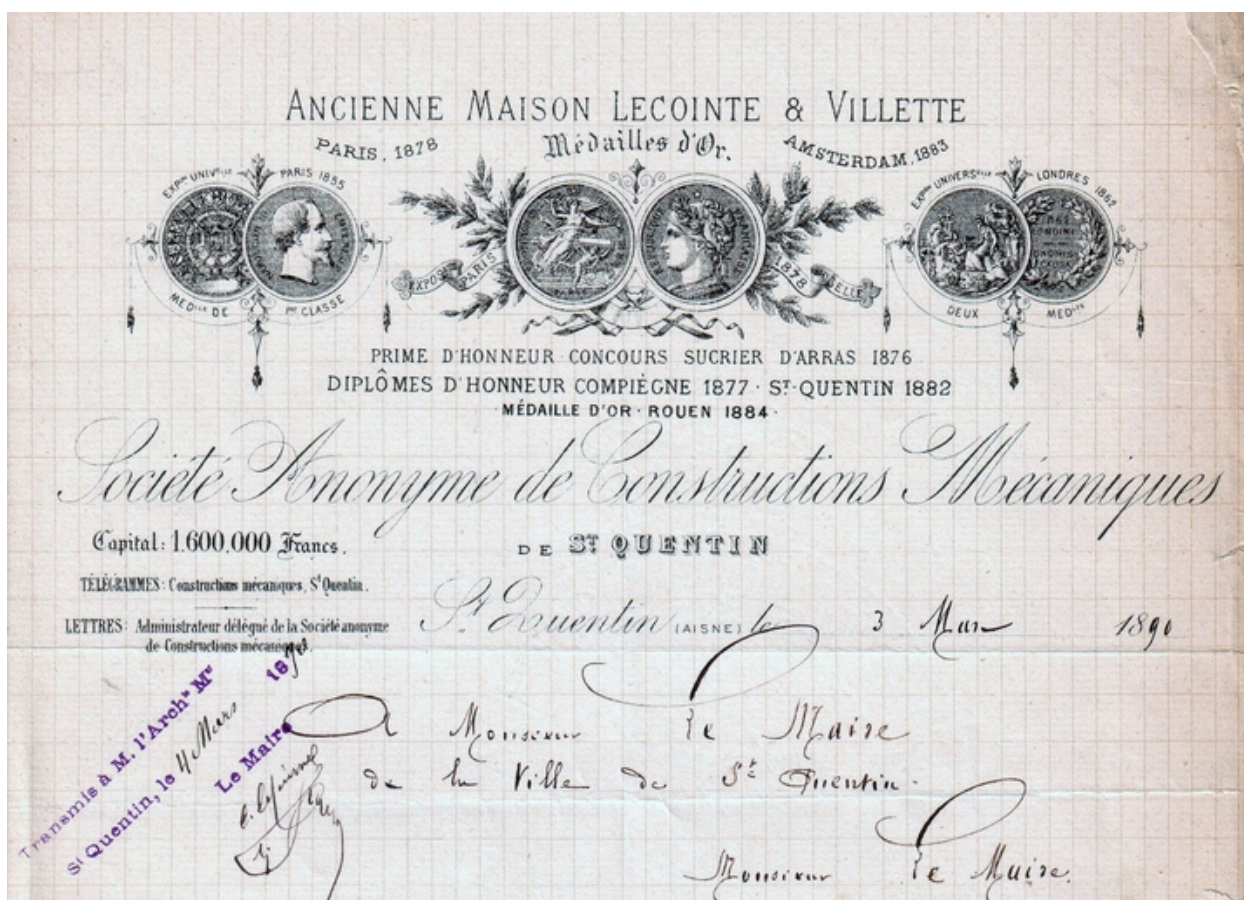 ANCIENNE MAISON LECOINTE & VILLETTE
PARIS, 1878
Médailles d'Or.
AMSTERDAM, 1883
EXPon UNIVelle PARIS 1855
MEDlle DE 1re CLASSE
NAPOLEON III EMPEREUR
EXPOS PARIS
REPUBLIQUE FRANCAISE
1878 SELLE
EXPon UNIVERSelle LONDRES 1862
DEUX MEDlles
PRIME D'HONNEUR CONCOURS SUCRIER D'ARRAS 1876
DIPLÔMES D'HONNEUR COMPIÈGNE 1877 · ST-QUENTIN 1882
· MÉDAILLE D'OR · ROUEN 1884 ·
Société Anonyme de Constructions Mécaniques
DE ST QUENTIN
Capital: 1.600.000 Francs.
TÉLÉGRAMMES: Constructions mécaniques, St Quentin.
LETTRES: Administrateur délégué de la Société anonyme
de Constructions mécaniques.
St Quentin (AISNE) le 3 Mars 1890
Transmis à M. l'Archte Mal
St Quentin, le 4 Mars 1890
Le Maire
A Monsieur le Maire
de la Ville de St Quentin.
Monsieur le Maire.